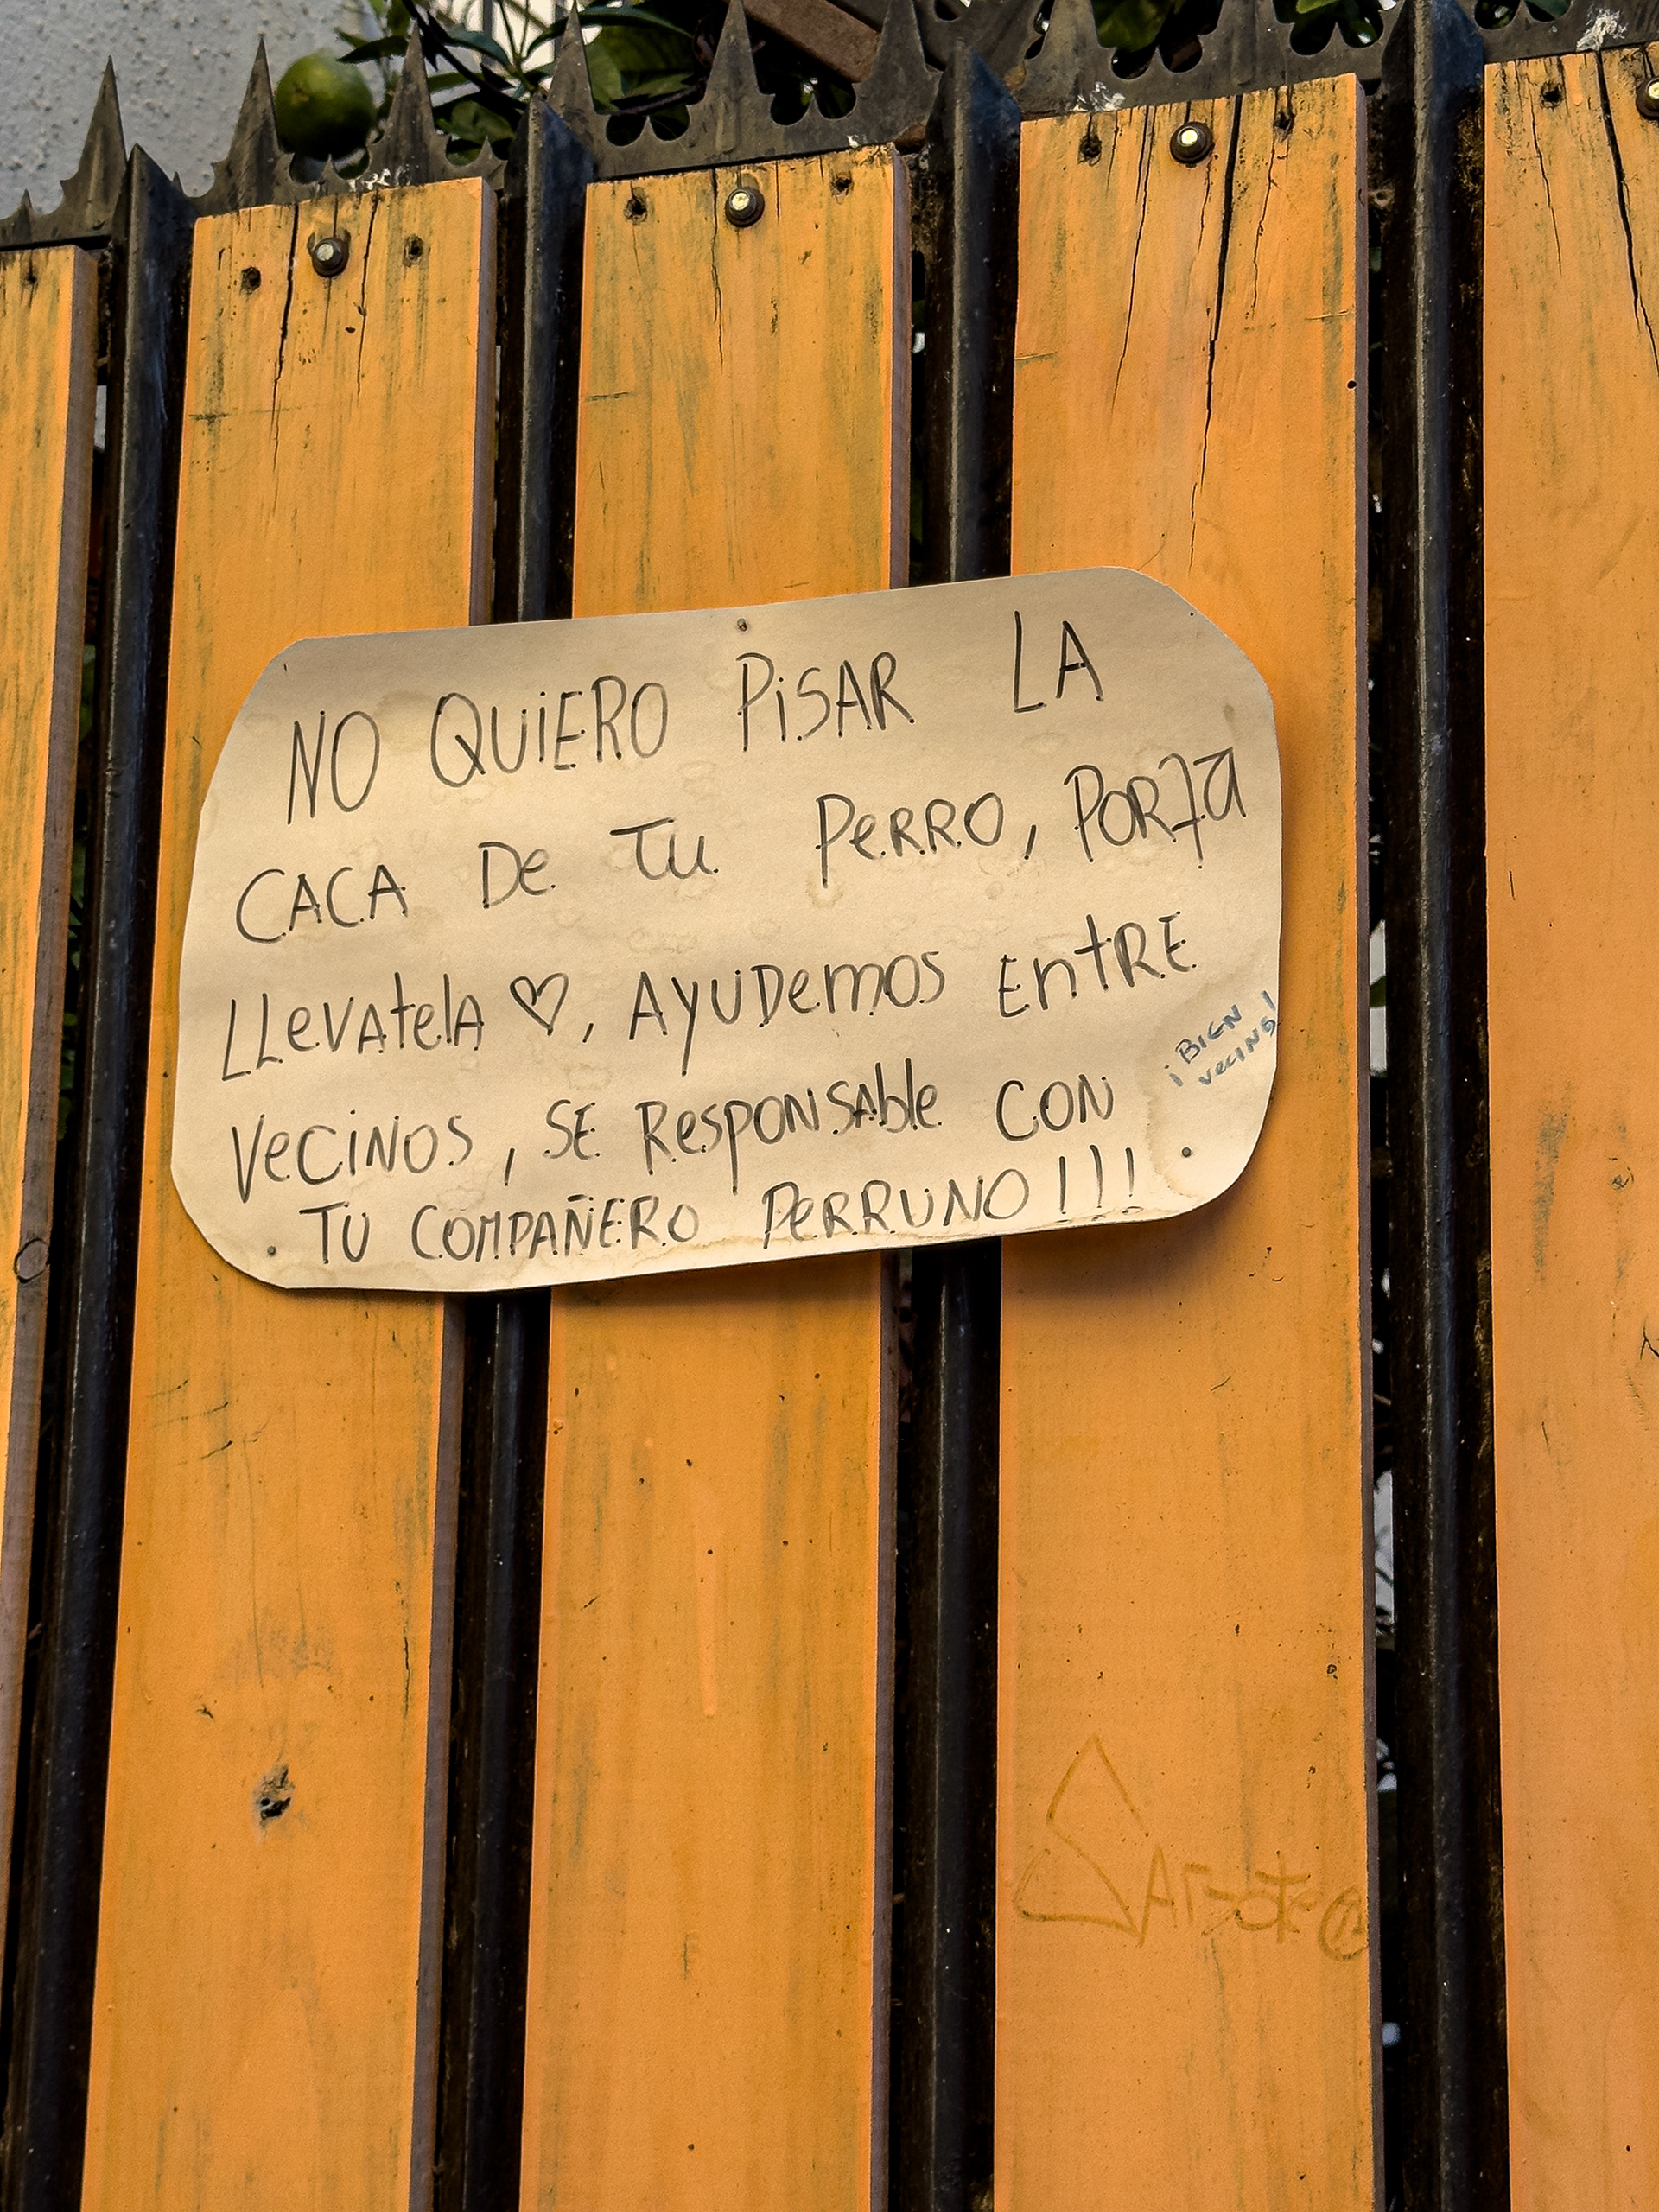 NO QUiERO PiSAR LA
CACA De Tu PeRRO, PORTA
LLeVAtelA ♡, AYUDemOS EntRE
VeCiNOS, SE ResPONSAble CON
TU COMPAÑERO PeRRUNO!!!
¡BIEN
vecino!